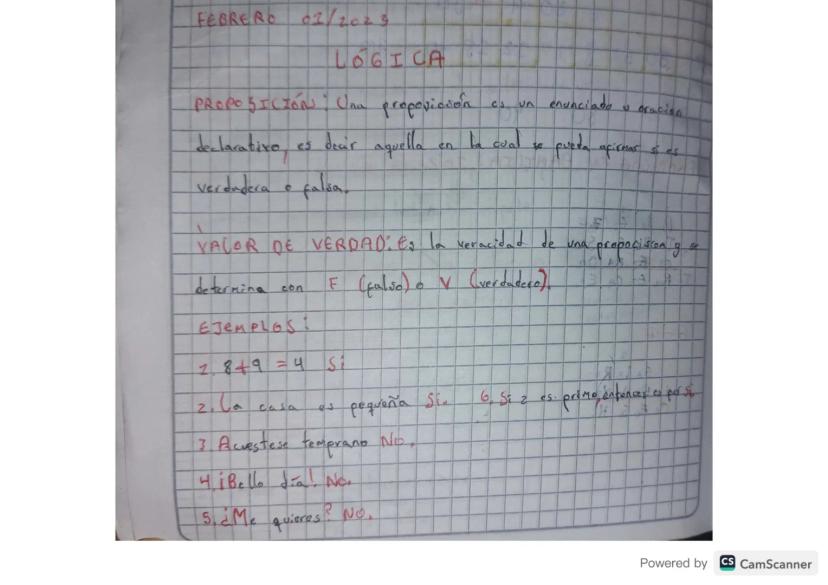 FEBRERO 01/2023
LÓGICA
PROPOSICIÓN: Una proposición es un enunciado u oración
declarativo, es decir aquella en la cual se pueda afirmar si es
verdadera o falsa.
VALOR DE VERDAD: Es la veracidad de una proposicion y se
determina con F (falso) o V (verdadero).
EJEMPLOS:
1. 8+9 = 4 Si
2. La casa es pequeña Si. 6. Si 2 es primo, entonces es par Si
3 Acuestese temprano No.
4. ¡Bello día! No.
5. ¿Me quieres? NO.
Powered by CS CamScanner